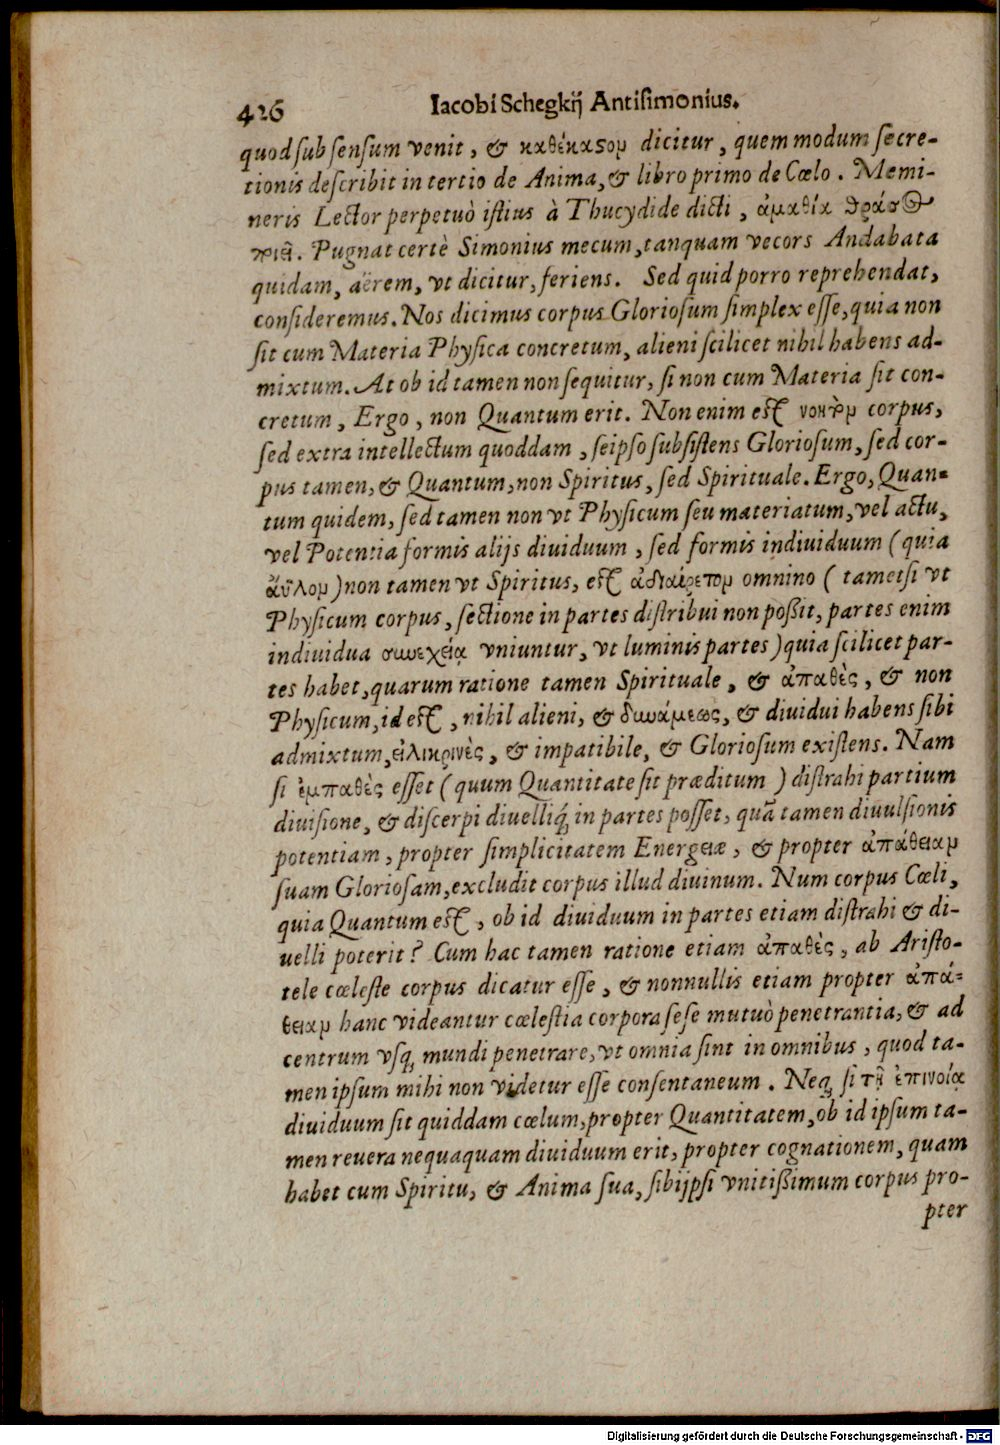 426
Iacobi Schegkij Antisimonius.
quod sub sensum venit, & καθέκαστον dicitur, quem modum secre-
tionis describit in tertio de Anima, & libro primo de Cœlo. Memi-
neris Lector perpetuò istius à Thucydide dicti, ἀμαθία θράσος
ποιεῖ. Pugnat certè Simonius mecum, tanquam vecors Andabata
quidam, aërem, vt dicitur, feriens. Sed quid porro reprehendat,
consideremus. Nos dicimus corpus Gloriosum simplex esse, quia non
sit cum Materia Physica concretum, alieni scilicet nihil habens ad-
mixtum. At ob id tamen non sequitur, si non cum Materia sit con-
cretum, Ergo, non Quantum erit. Non enim est νοητὸν corpus,
sed extra intellectum quoddam, seipso subsistens Gloriosum, sed cor-
pus tamen, & Quantum, non Spiritus, sed Spirituale. Ergo, Quan-
tum quidem, sed tamen non vt Physicum seu materiatum, vel actu,
vel Potentia formis alijs diuiduum, sed formis indiuiduum (quia
ἄϋλον) non tamen vt Spiritus, est ἀδιαίρετον omnino (tametsi vt
Physicum corpus, sectione in partes distribui non poßit, partes enim
indiuidua συνεχείᾳ vniuntur, vt luminis partes) quia scilicet par-
tes habet, quarum ratione tamen Spirituale, & ἀπαθὲς, & non
Physicum, id est, nihil alieni, & δυνάμεως, & diuidui habens sibi
admixtum, εἰλικρινὲς, & impatibile, & Gloriosum existens. Nam
si ἐμπαθὲς esset (quum Quantitate sit præditum) distrahi partium
diuisione, & discerpi diuelliq́; in partes posset, quā tamen diuulsionis
potentiam, propter simplicitatem Energειæ, & propter ἀπάθειαν
suam Gloriosam, excludit corpus illud diuinum. Num corpus Cœli,
quia Quantum est, ob id diuiduum in partes etiam distrahi & di-
uelli poterit? Cum hac tamen ratione etiam ἀπαθὲς, ab Aristo-
tele cœleste corpus dicatur esse, & nonnullis etiam propter ἀπά-
θειαν hanc videantur cœlestia corpora sese mutuò penetrantia, & ad
centrum vsq; mundi penetrare, vt omnia sint in omnibus, quod ta-
men ipsum mihi non videtur esse consentaneum. Neq; si τῇ ἐπινοίᾳ
diuiduum sit quiddam cœlum, propter Quantitatem, ob id ipsum ta-
men reuera nequaquam diuiduum erit, propter cognationem, quam
habet cum Spiritu, & Anima sua, sibijpsi vnitißimum corpus pro-
pter
Digitalisierung gefördert durch die Deutsche Forschungsgemeinschaft - DFG